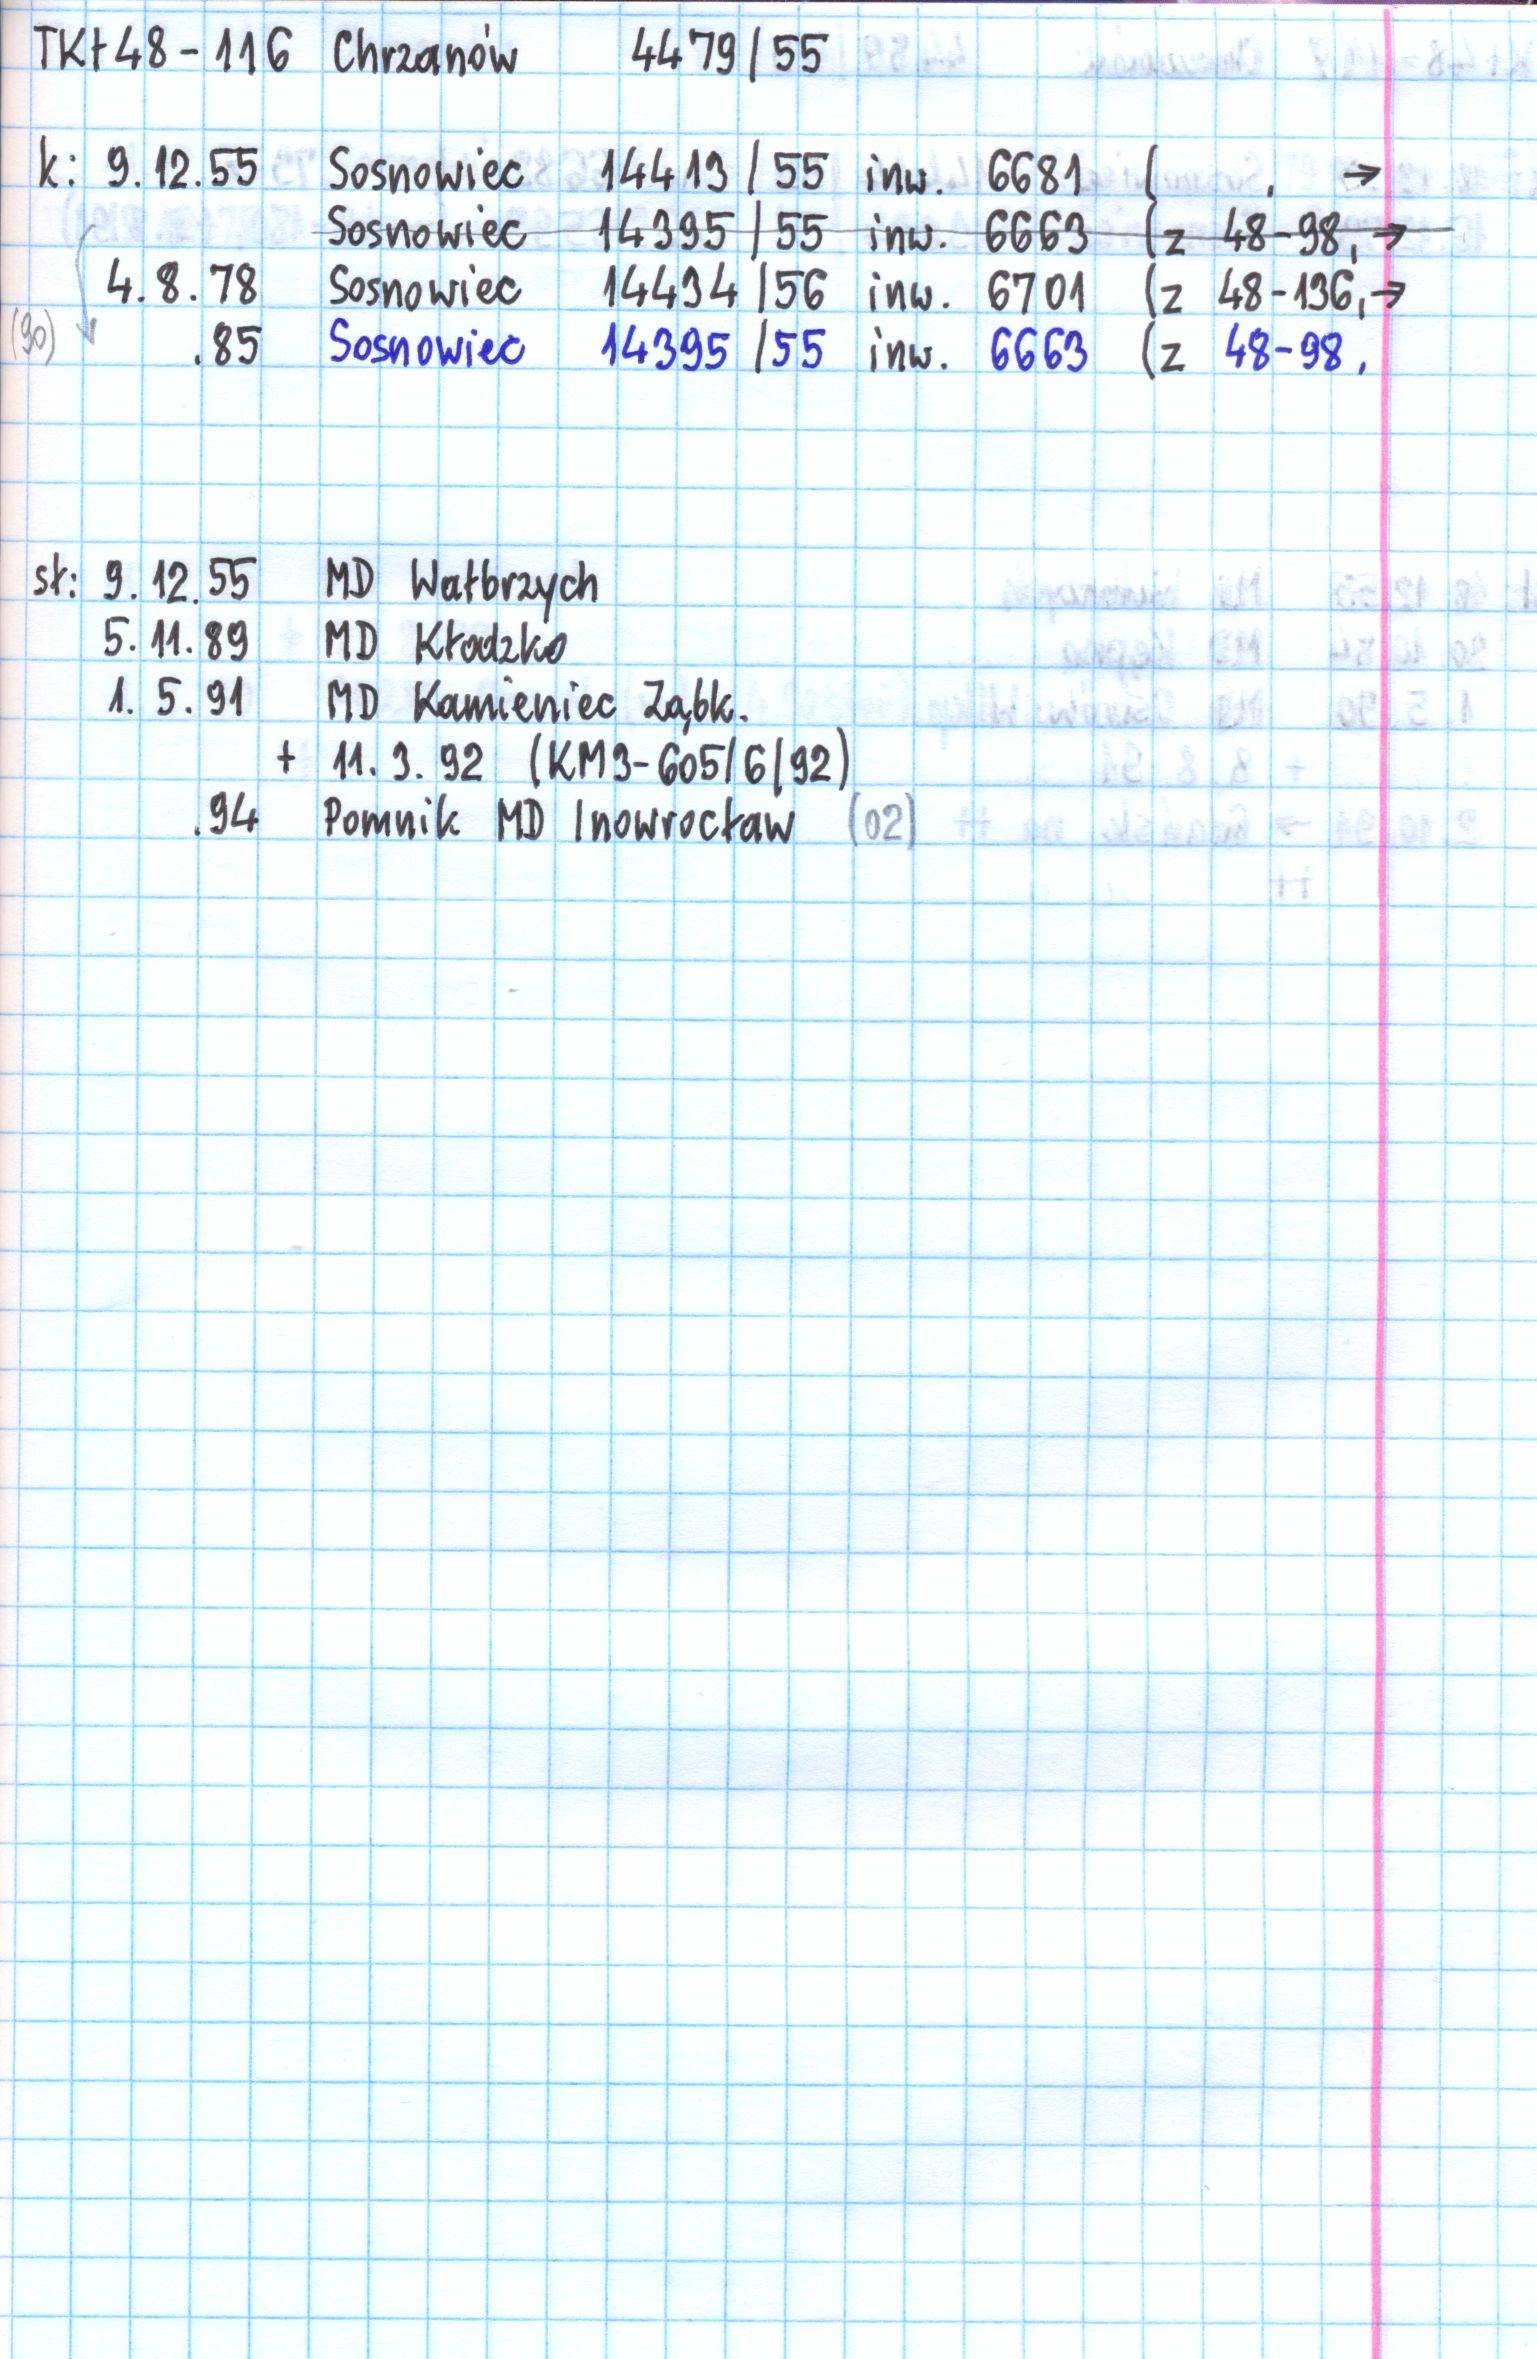 TKt48-116 Chrzanów 4479/55
k: 9.12.55 Sosnowiec 14413/55 inw. 6681 ( , →
Sosnowiec 14395/55 inw. 6663 (z 48-98, →
4.8.78 Sosnowiec 14434/56 inw. 6701 (z 48-136, →
(90) .85 Sosnowiec 14395/55 inw. 6663 (z 48-98,
sł: 9.12.55 MD Wałbrzych
5.11.89 MD Kłodzko
1.5.91 MD Kamieniec Ząbk.
+ 11.3.92 (KM3-605/6/92)
.94 Pomnik MD Inowrocław (02)